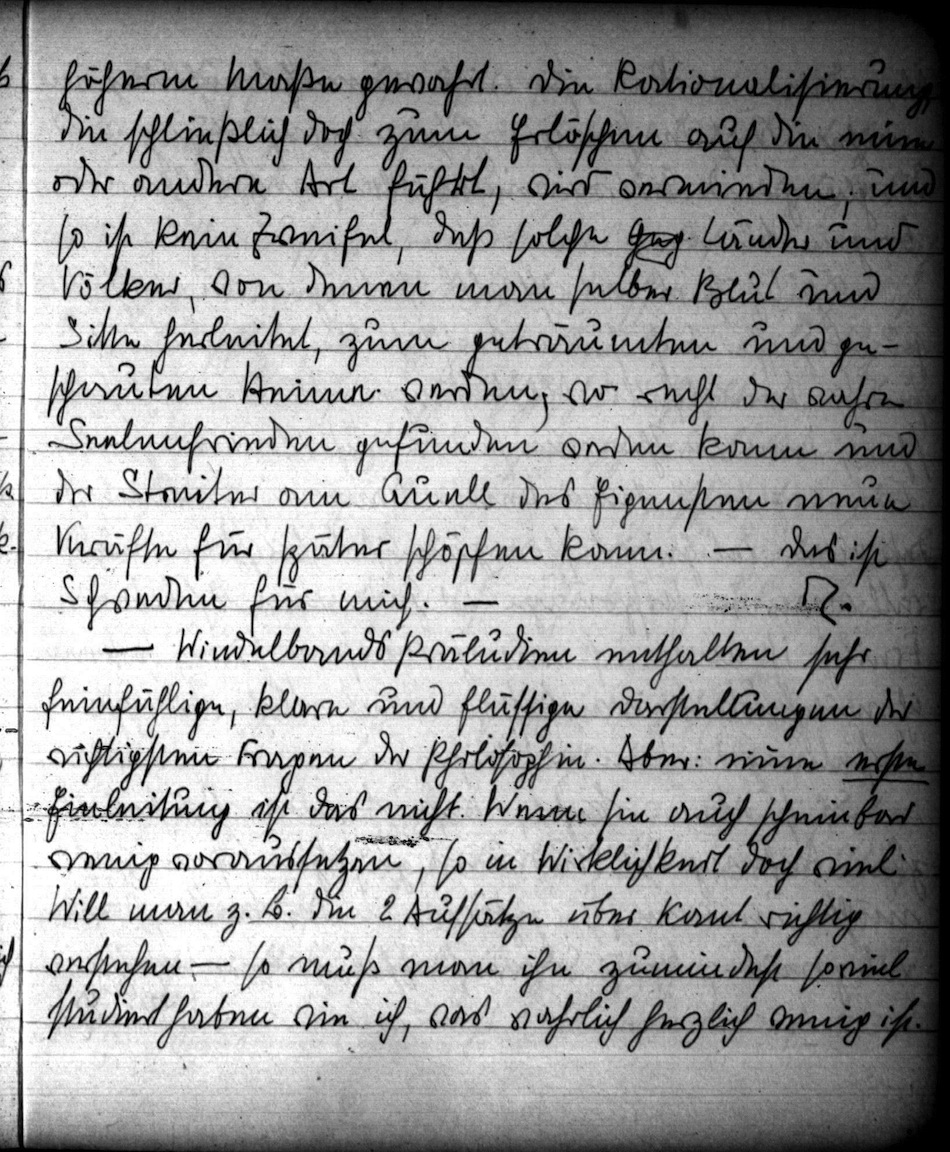 höherm Maße gewahrt. Die Rationalisierung,
die schließlich doch zum Erlöschen auf die eine
oder andere Art führt, wird vermieden, und
so ist kein Zweifel, daß solche Länder und
Völker, von denen man selber Blut und
Sitte herleitet, zum geträumten und ge-
schauten werden, wo recht der wahre
Seelenfrieden gefunden werden kann und
der Streiter am Quell des Eigensten neue
Kräfte für später schöpfen kann. — das ist
Schweden für mich. —
— Windelbands Präludien enthalten sehr
feinfühlige, klare und flüssige Darstellungen der
wichtigsten Fragen der Philosophie. Aber: eine erste
Einleitung ist das nicht. Wenn sie auch scheinbar
wenig voraussetzen, so in Wirklichkeit doch viel.
Will man z. B. die 2 Aufsätze über Kant richtig
verstehen — so muß man ihn zumindest soviel
studiert haben wie ich, was wahrlich herzlich wenig ist.